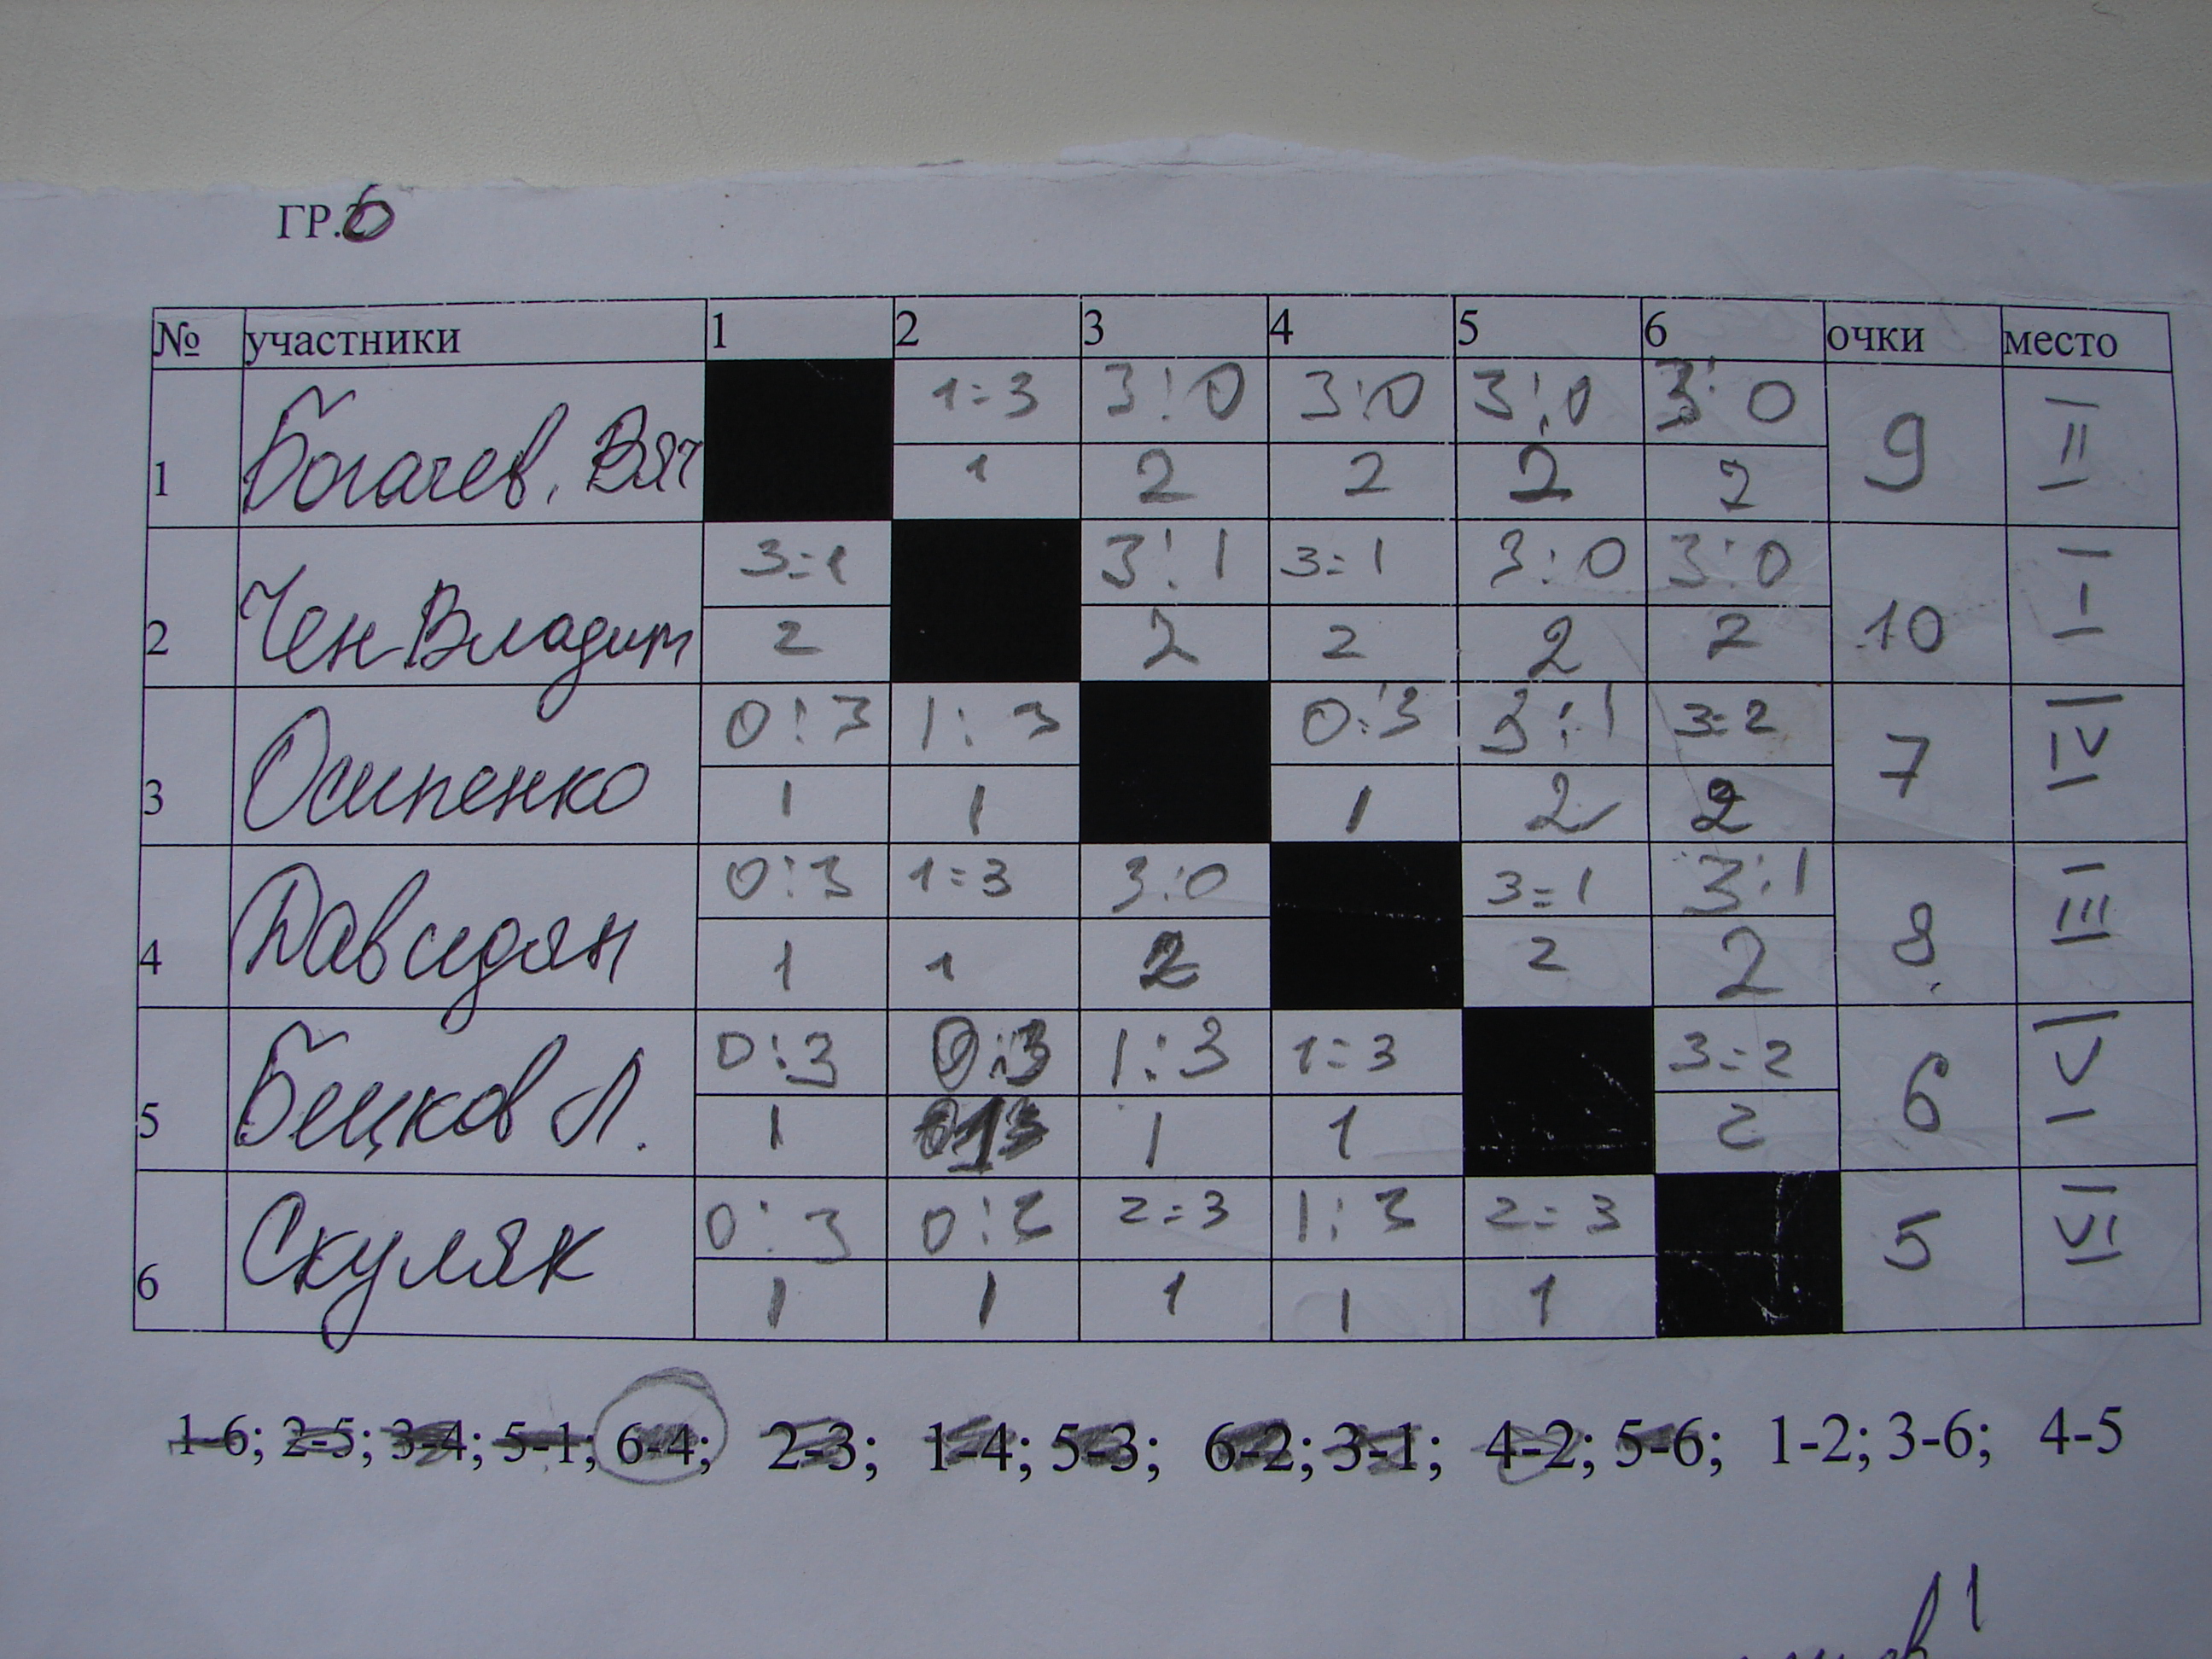 ГР.6
№ участники 1 2 3 4 5 6 очки место
1:3 3:0 3:0 3:0 3:0
1 Богачев. Вяч 1 2 2 2 2 9 II
3:1 3:1 3:1 3:0 3:0
2 Чен Владим 2 2 2 2 2 10 I
0:3 1:3 0:3 3:1 3:2
3 Осипенко 1 1 1 2 2 7 IV
0:3 1:3 3:0 3:1 3:1
4 Давидян 1 1 2 2 2 8 III
0:3 0:3 1:3 1:3 3:2
5 Бецков Л. 1 1 1 1 2 6 V
0:3 0:3 2:3 1:3 2:3
6 Скуляк 1 1 1 1 1 5 VI
1-6; 2-5; 3-4; 5-1; 6-4; 2-3; 1-4; 5-3; 6-2; 3-1; 4-2; 5-6; 1-2; 3-6; 4-5